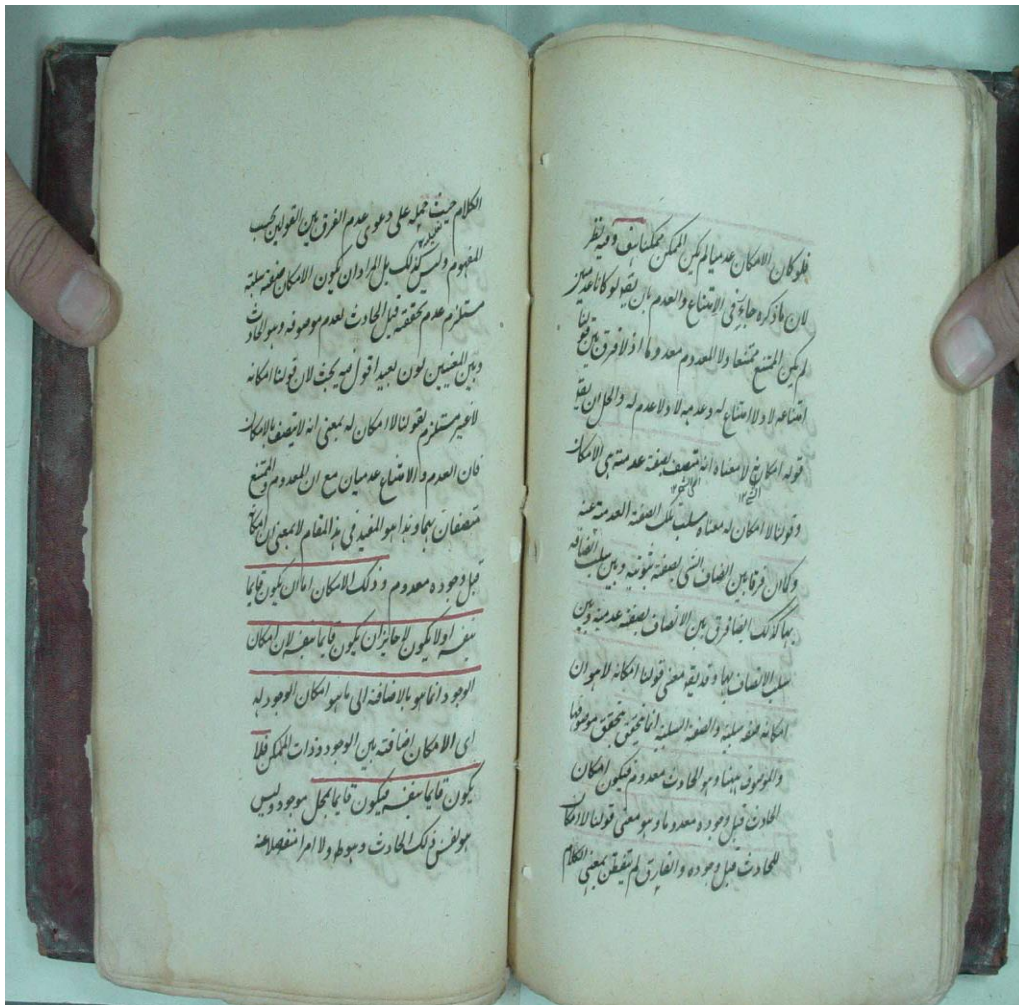 فلو كان الامكان عدميا لم يكن الممكن ممكنا هف وفيه نظر
لان ما ذكره جار في الامتناع والعدم بان يقو لو كانا عدميين
لم يكن الممتنع ممتنعا ولا المعدوم معدوما اذ لا فرق بين قولنا
امتناعه لا ولا امتناع له وعدمه لا ولا عدم له والحل ان يقا
قوله امكانه لا معناه انه متصف بصفة عدمية هي الامكان
وقولنا لا امكان له معناه سلب تلك الصفة العدمية عنه
وكما ان فرقا بين اتصاف الشي بصفة ثبوتية وبين سلب اتصافه
بها كذلك ايضا فرق بين الاتصاف بصفة عدمية وبين
سلب الاتصاف بها وقد يقو معنى قولنا امكانه لا هو ان
امكانه صفة سلبية والصفة السلبية انما يتحقق بتحقق موصوفها
والموصوف ههنا وهو الحادث معدوم فيكون امكان
الحادث قبل وجوده معدوما وهو معنى قولنا لا امكان
للحادث قبل وجوده والفارق لم يتفطن بمعنى الكلام
الكلام حيث حمله على دعوى عدم الفرق بين القولين بحسب
المفهوم وليس كذلك بل المراد ان كون الامكان صفة سلبية
مستلزم عدم تحققه قبل الحادث لعدم موصوفه وهو الحادث
وبين المعنيين بون بعيد اقول فيه بحث لان قولنا امكانه
لا غير مستلزم لقولنا لا امكان له بمعنى انه لا يتصف بالامكان
فان العدم والامتناع عدميان مع ان المعدوم والممتنع
متصفان بهما وهذا هو المفيد في هذا المقام لا بمعنى ان امكانه
قبل وجوده معدوم وذلك الامكان اما ان يكون قايما
بنفسه او لا يكون لا جايز ان يكون قايما بنفسه لان امكان
الوجود انما هو بالاضافة الى ما هو امكان الوجود له
اى الامكان اضافة بين الوجود وذات الممكن فلا
يكون قايما بنفسه فيكون قايما بمحل موجود وليس
هو نفس ذلك الحادث وهو ط ولا امرا منفصلا عنه